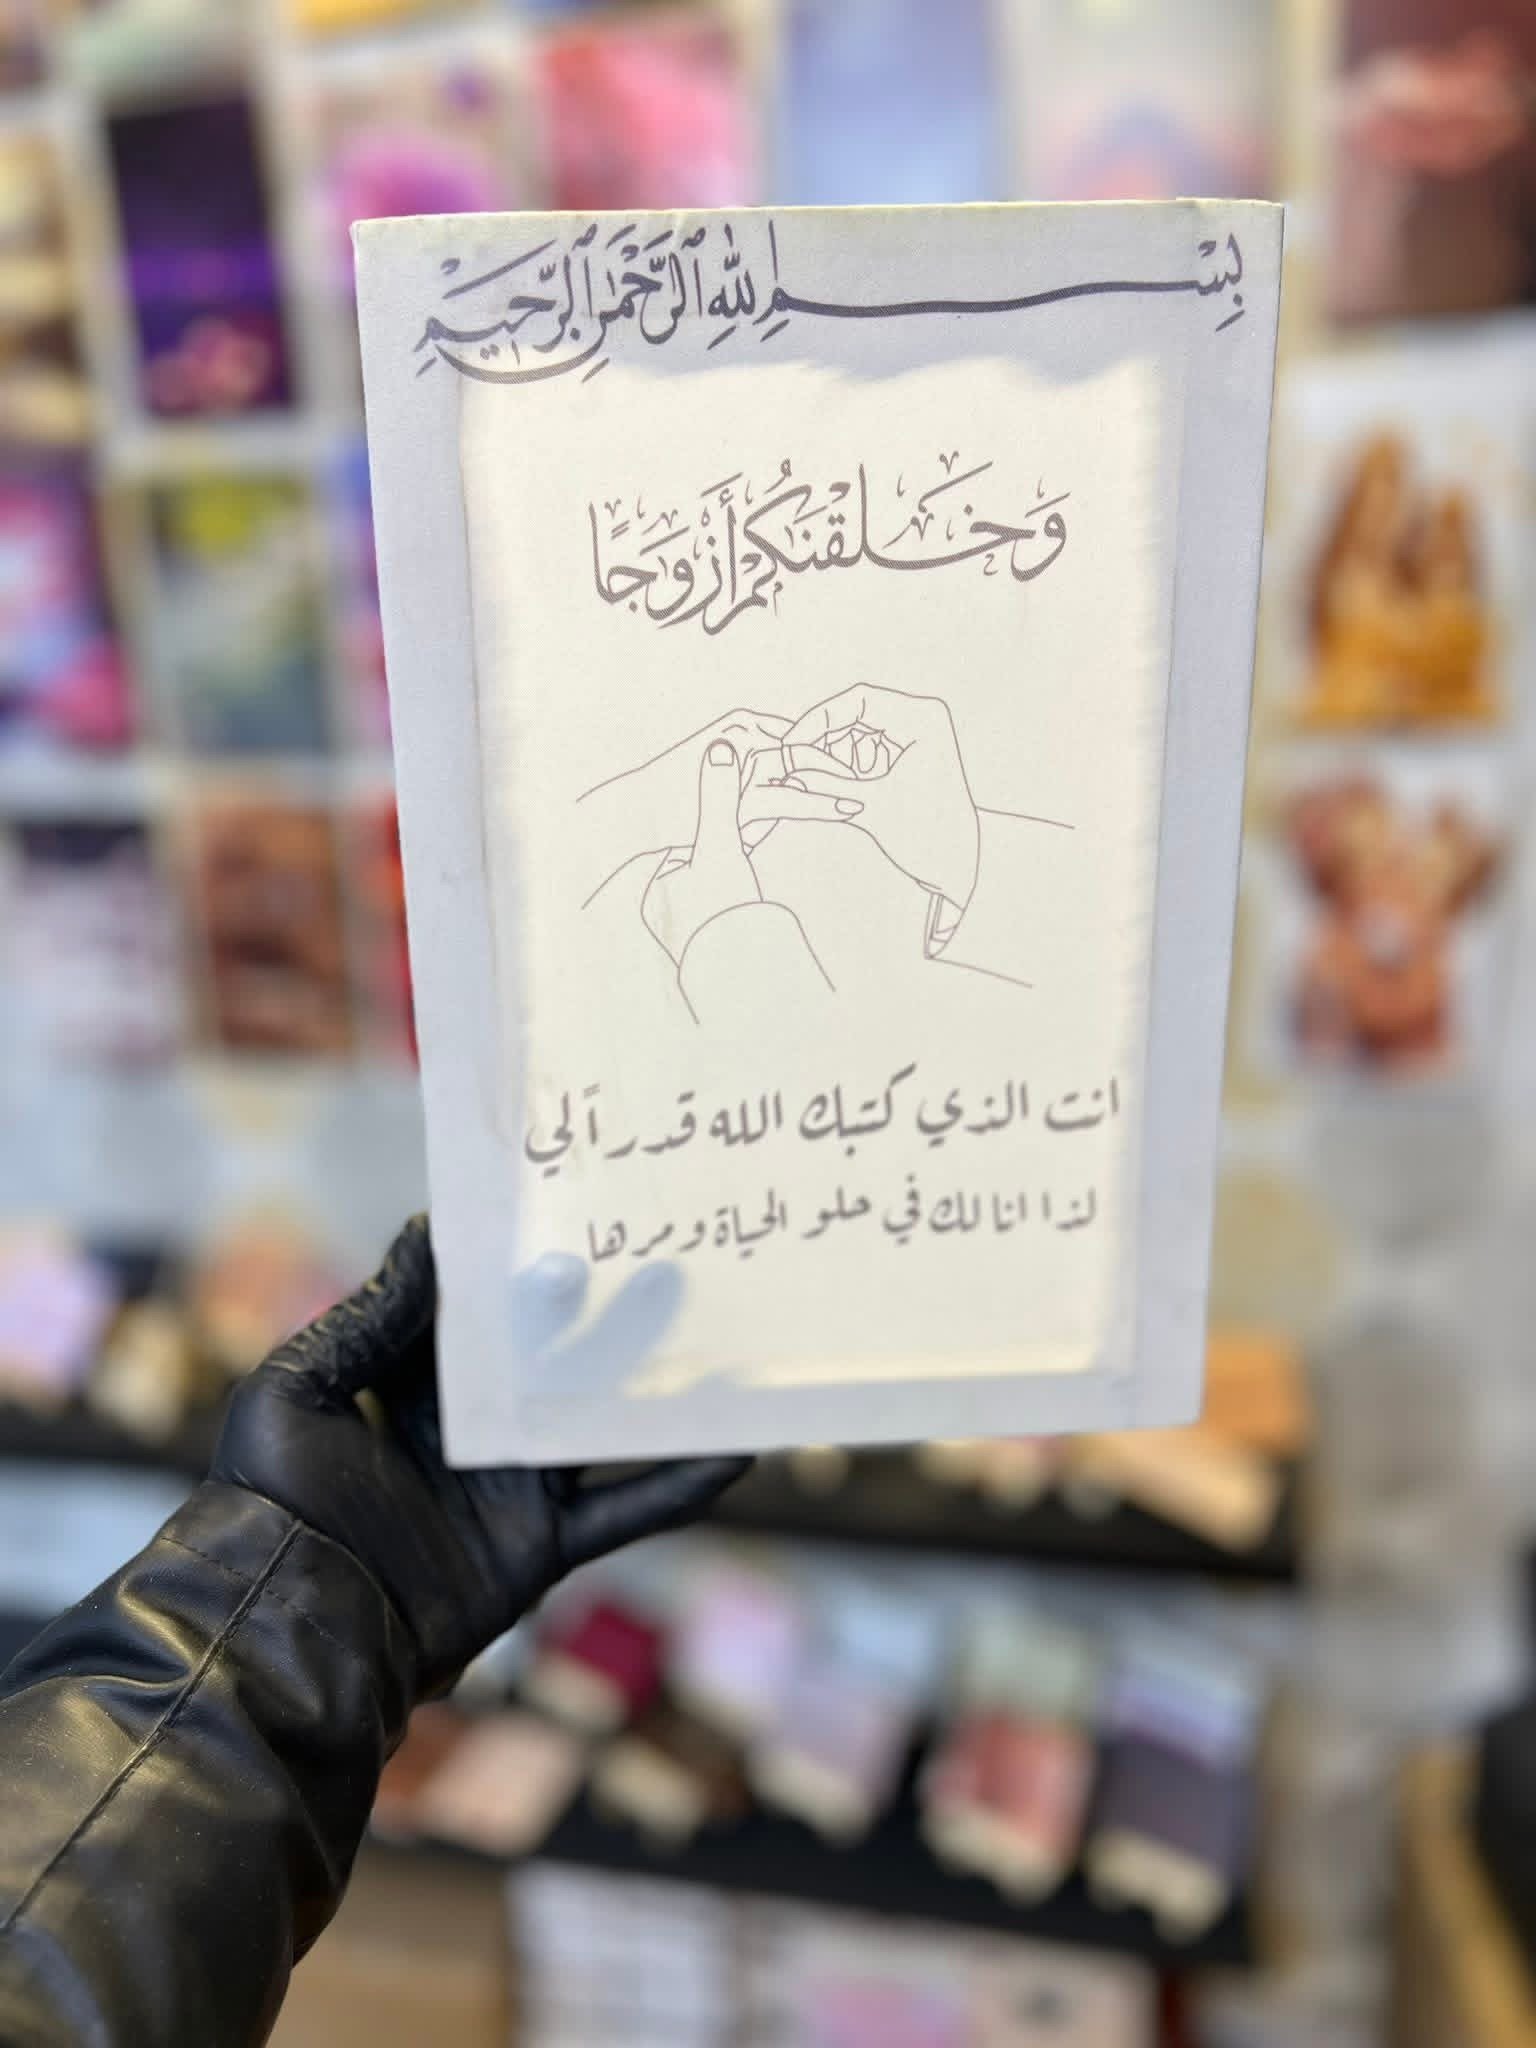 بِسْمِ ٱللَّهِ ٱلرَّحْمَٰنِ ٱلرَّحِيمِ
وَخَلَقْنَٰكُمْ أَزْوَٰجًا
انت الذي كتبك الله قدراً لي
لذا انا لك في حلو الحياة ومرها